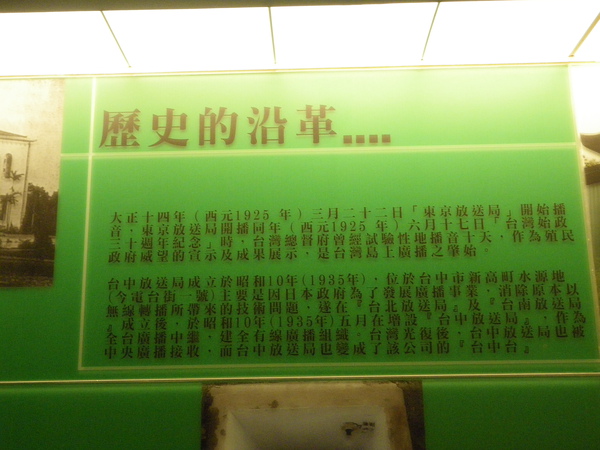 歷史的沿革....
大正十四年(西元1925 年)三月二十二日「東京放送局」開始播
音,東京放送局開播同年(西元1925 年)六月十七日「台灣始政
三十週年紀念」時,台灣總督府曾經試驗性地播音十天,作為殖民
政府威望的宣示及成果展示,是台灣島上廣播之肇始。
台中放送局成立於昭和10年(1935年),位於台中市新高町水源地
(今電台街一號)主要是因日本政府為了發展廣播事業,消除原本以
無線轉播所帶來的技術問題,遂在『台北放送局』及『台南放送局
』成立後,於昭和10年(1935年)五月在增設『台中放送局』,作為
全台廣播中繼,建全台有線廣播組織。台灣光復後,台中放送局也被
中央廣播接收,面中放送局也變成了該公司的『台中台』